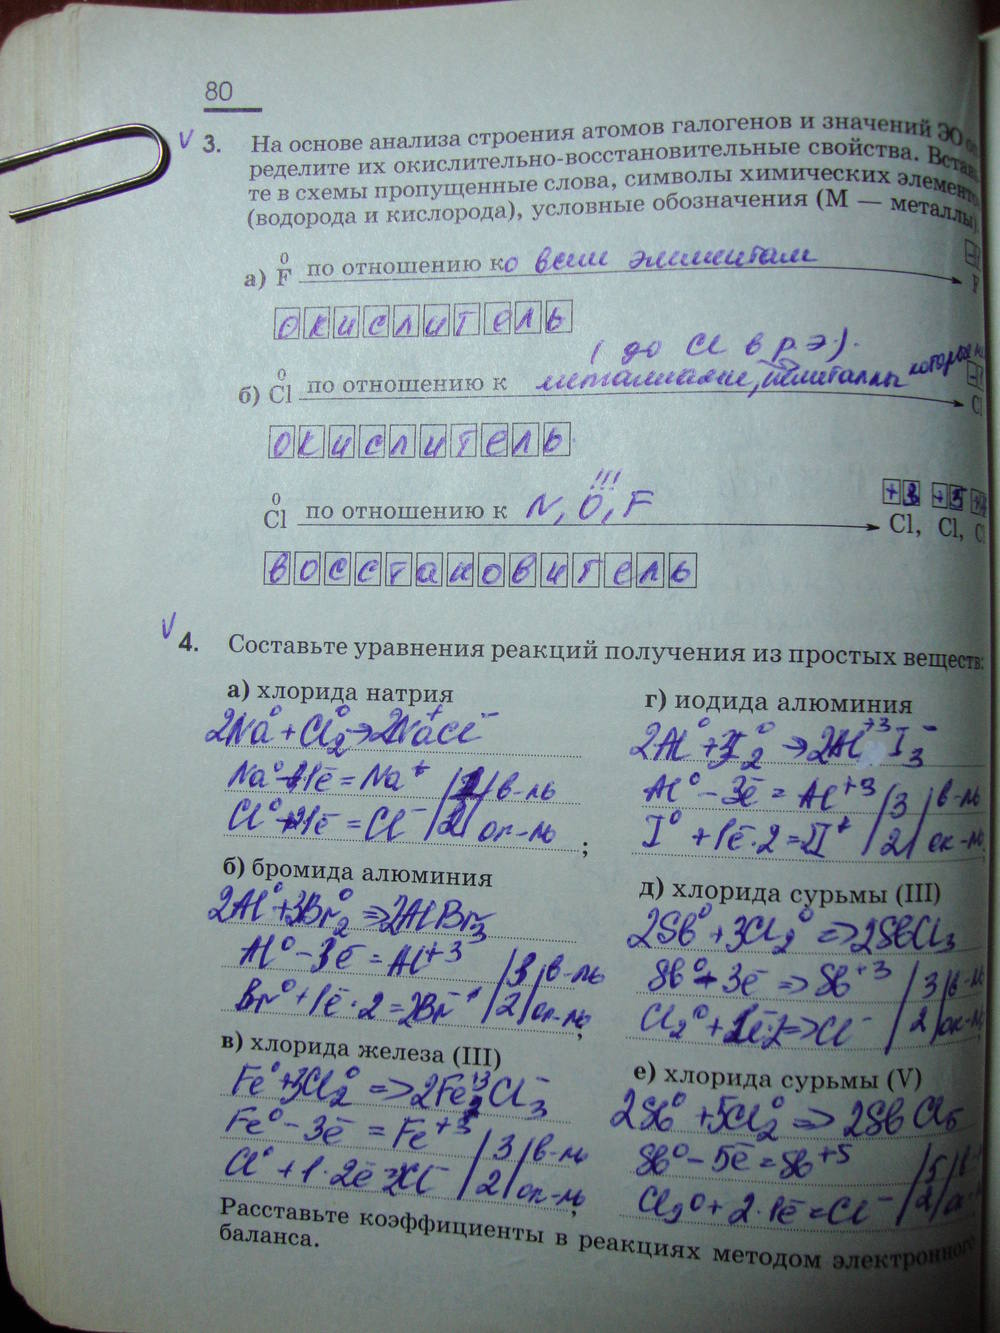 80
3. На основе анализа строения атомов галогенов и значений ЭО оп
ределите их окислительно-восстановительные свойства. Встав
те в схемы пропущенные слова, символы химических элементо
(водорода и кислорода), условные обозначения (М — металлы).
а) F⁰ по отношению ко всем элементам F
окислитель
(до Cl в р. э.).
б) Cl⁰ по отношению к металлами, неметаллы Cl
окислитель
!!!
Cl⁰ по отношению к N, O, F Cl, Cl, Cl
восстановитель
4. Составьте уравнения реакций получения из простых веществ:
а) хлорида натрия
2Na⁰ + Cl₂⁰ → 2Na⁺Cl⁻
Na⁰ - 1ē = Na⁺ в-ль
Cl⁰ + 1ē = Cl⁻ | 2 | ок-ль ;
б) бромида алюминия
2Al⁰ + 3Br₂⁰ ⇒ 2AlBr₃
Al⁰ - 3ē = Al⁺³ | 3 | в-ль
Br⁰ + 1ē · 2 = 2Br⁻ | 2 | ок-ль ;
в) хлорида железа (III)
Fe⁰ + 3Cl₂⁰ ⇒ 2Fe⁺³Cl₃⁻
Fe⁰ - 3ē = Fe⁺³ | 3 | в-ль
Cl⁰ + 1 · 2ē = 2Cl⁻ | 2 | ок-ль ;
г) иодида алюминия
2Al⁰ + 3I₂⁰ → 2Al⁺³I₃⁻
Al⁰ - 3ē = Al⁺³ | 3 | в-ль
I⁰ + 1ē · 2 = | 2 | ок-ль
д) хлорида сурьмы (III)
2Sb⁰ + 3Cl₂⁰ ⇒ 2SbCl₃
Sb⁰ - 3ē ⇒ Sb⁺³ | 3 | в-ль
Cl₂⁰ + 1ē · 2 ⇒ Cl⁻ | 2 | ок-ль
е) хлорида сурьмы (V)
2Sb⁰ + 5Cl₂⁰ ⇒ 2SbCl₅
Sb⁰ - 5ē = Sb⁺⁵ | 5 |
Cl₂⁰ + 2 · 1ē = Cl⁻ | 2 |
Расставьте коэффициенты в реакциях методом электронного
баланса.